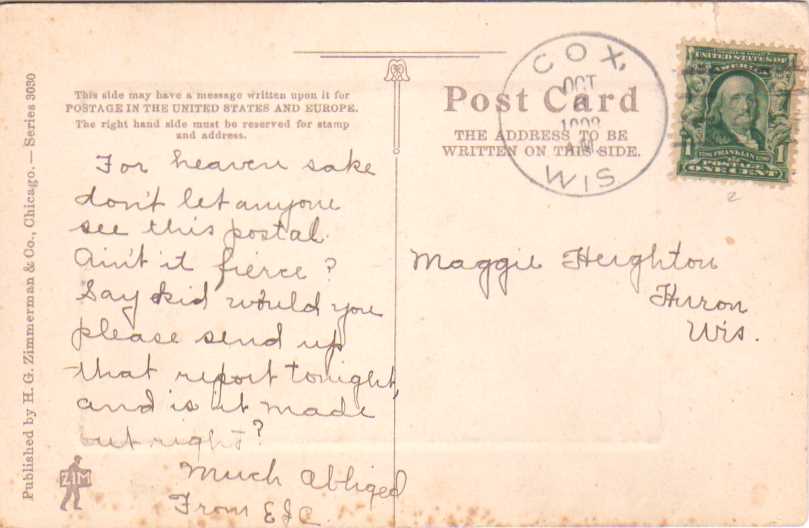 This side may have a message written upon it for
POSTAGE IN THE UNITED STATES AND EUROPE.
The right hand side must be reserved for stamp
and address.
Post Card
THE ADDRESS TO BE
WRITTEN ON THIS SIDE.
COX,
OCT
1908
AM
WIS
UNITED STATES OF
AMERICA
1706 FRANKLIN 1790
POSTAGE
1 ONE CENT 1
For heaven sake
don't let anyone
see this postal.
Ain't it fierce?
Say kid would you
please send up
that report tonight,
and is it made
out right?
Much Abliged
From
Maggie Heighton
Huron
Wis.
Published by H. G. Zimmerman & Co., Chicago. — Series 3030
ZIM